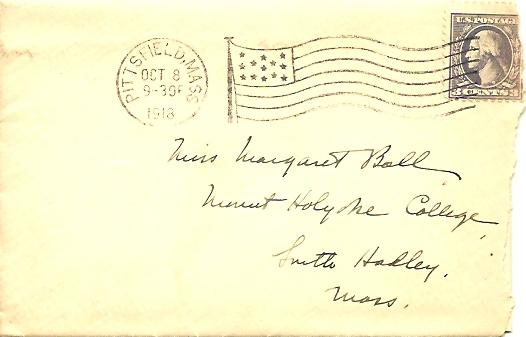 PITTSFIELD, MASS
OCT 8
9-30P
1918
U.S. POSTAGE
3 CENTS 3
Miss Margaret Ball
Mount Holyoke College,
South Hadley,
Mass.